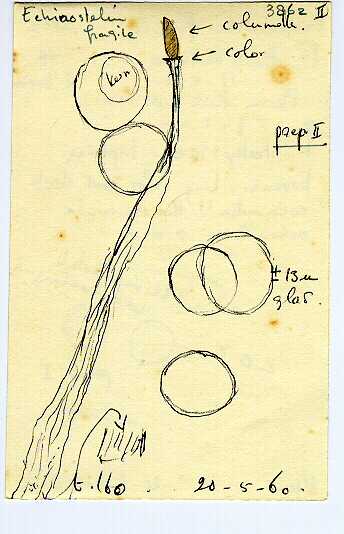 Echinostelin
fragile
3862 II
columella.
color
prep II
± 13 u
glad.
t. 160
20-5-60.